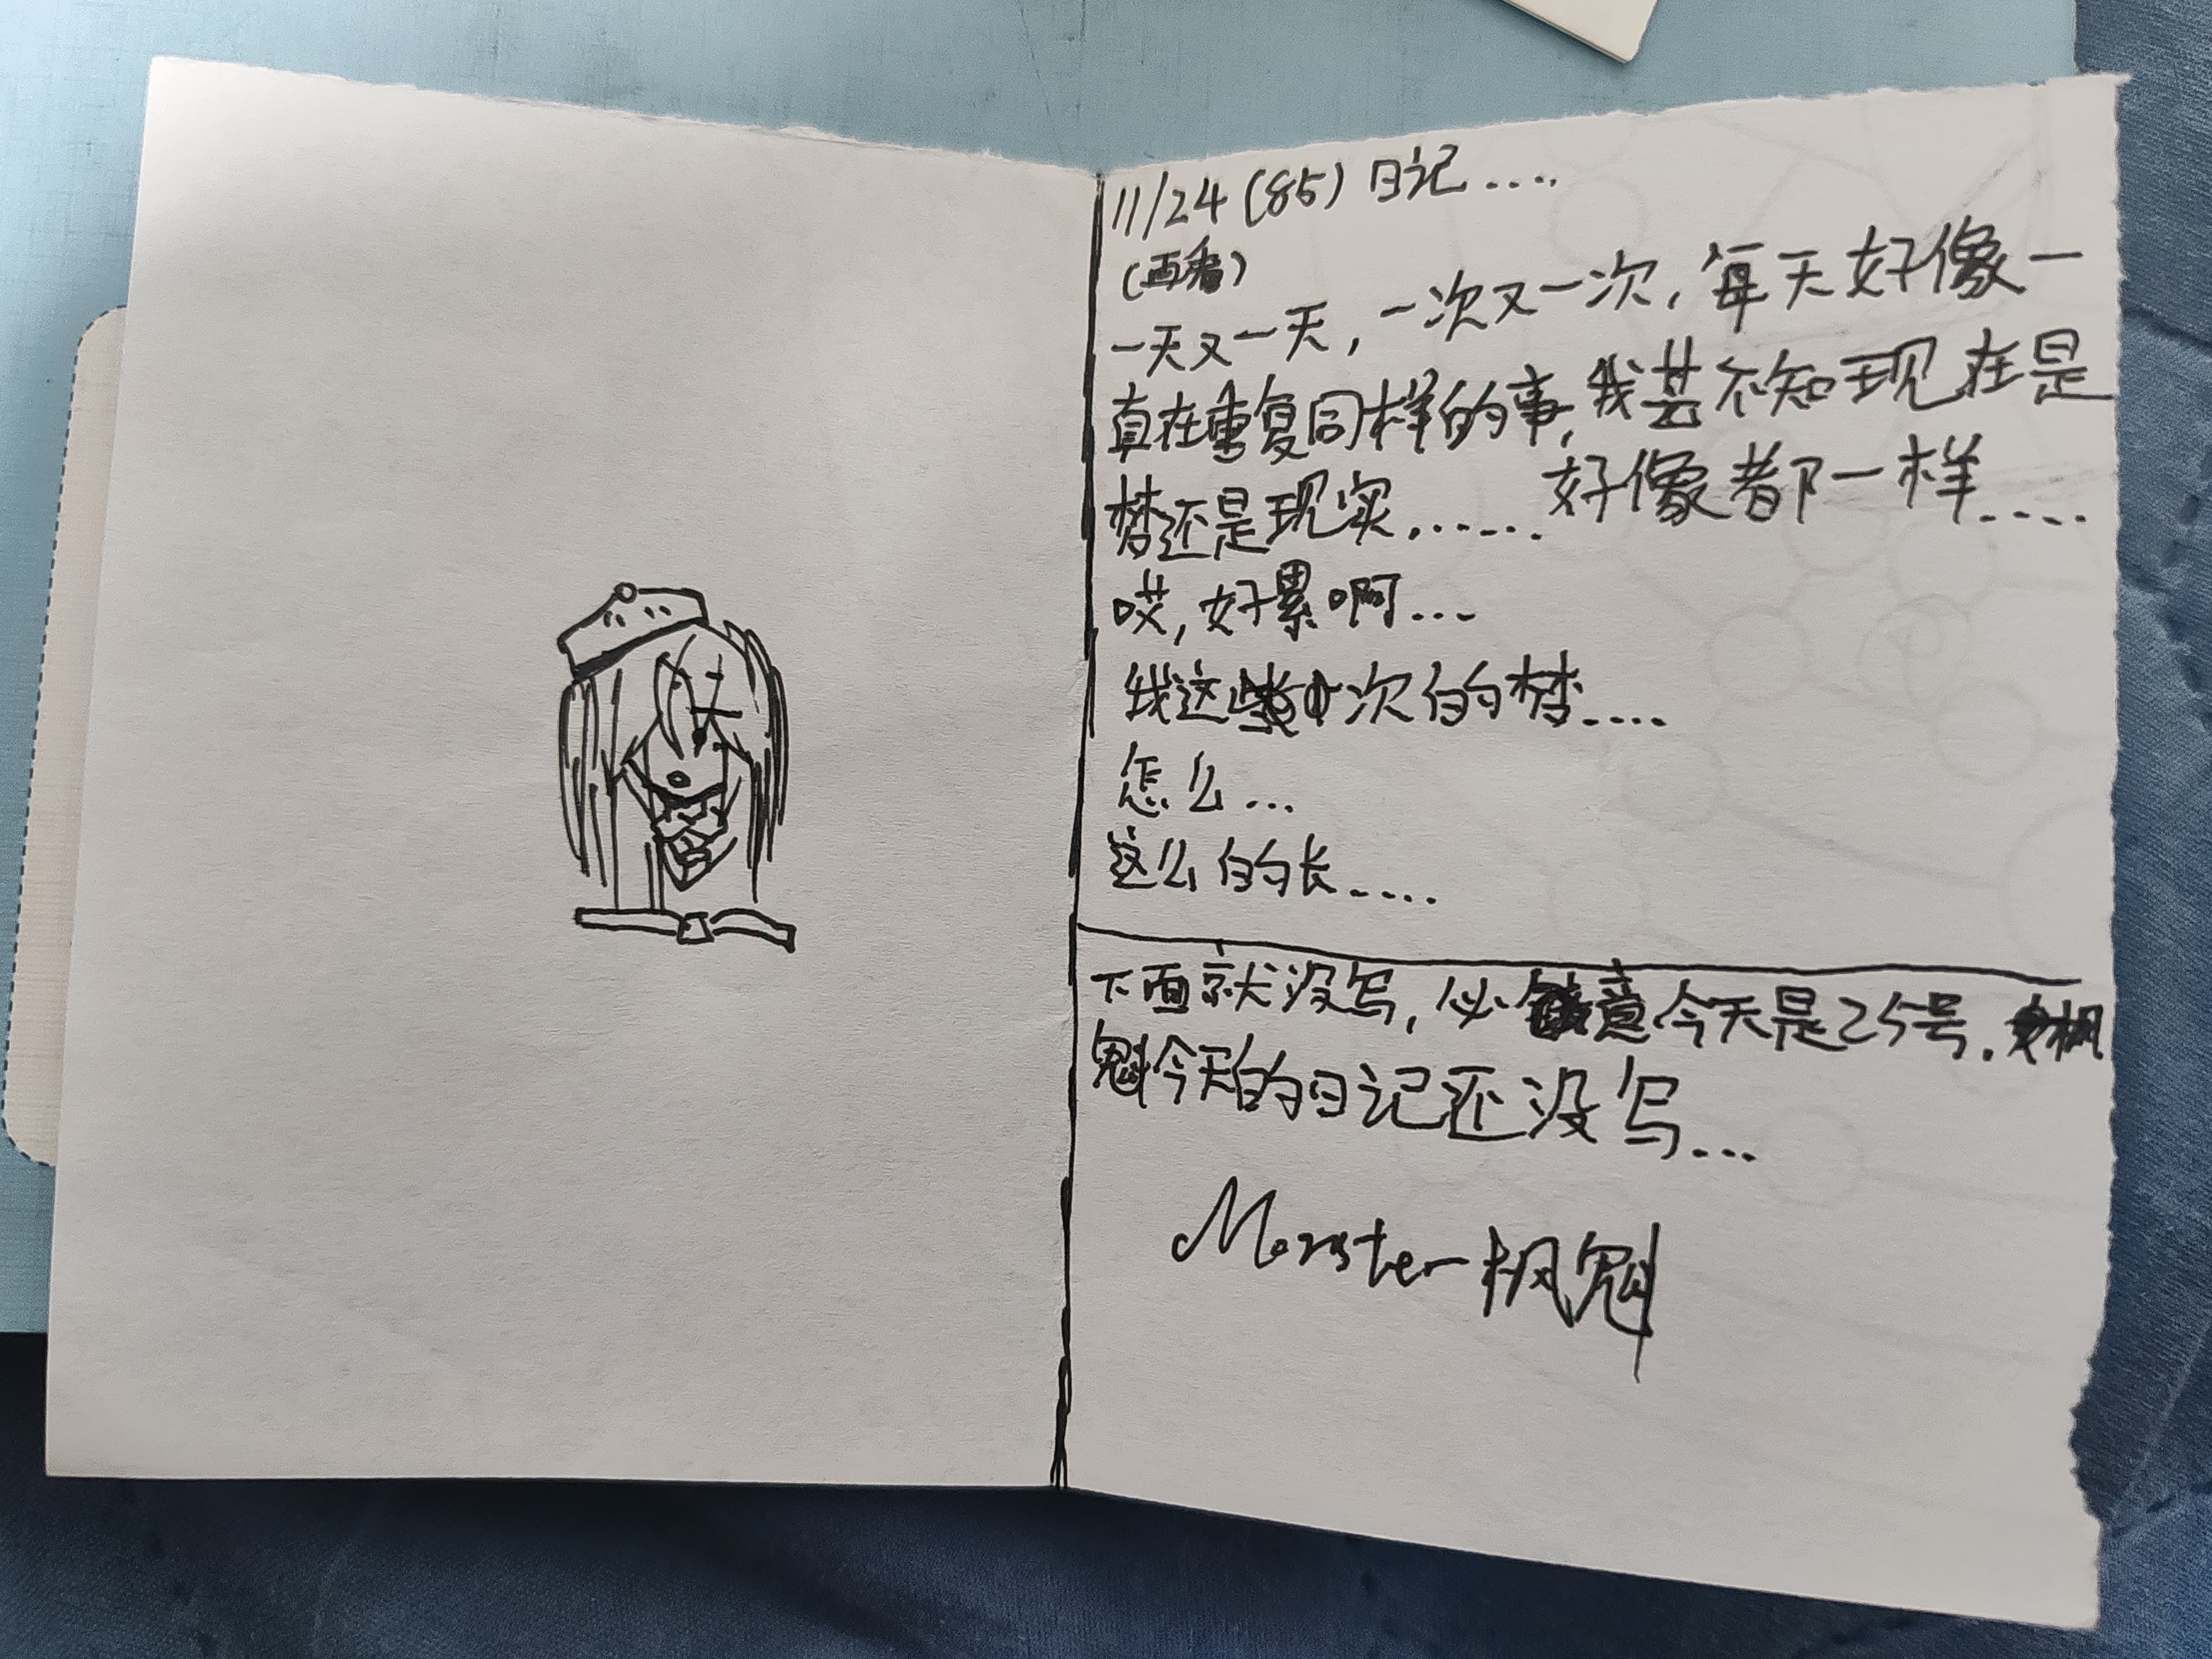 11/24(85)日记....
(再看)
一天又一天,一次又一次,每天好像一
直在重复同样的事,我甚不知现在是
梦还是现实.......好像都一样....
哎,好累啊...
我这次的梦....
怎么...
这么的长....
下面就没写,意今天是25号.枫
魁今天的日记还没写...
Monster枫魁